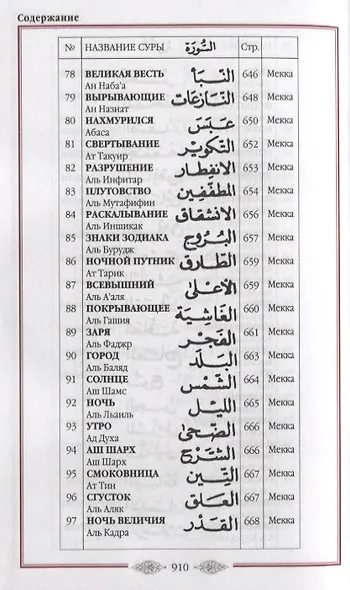 Содержание
№ НАЗВАНИЕ СУРЫ السُّورَة Стр.
78 ВЕЛИКАЯ ВЕСТЬ النَّبَأ 646 Мекка
Ан Наба'а
79 ВЫРЫВАЮЩИЕ النَّازعَات 648 Мекка
Ан Назиат
80 НАХМУРИЛСЯ عَبَسَ 650 Мекка
Абаса
81 СВЕРТЫВАНИЕ التَّكوير 652 Мекка
Ат Такуир
82 РАЗРУШЕНИЕ الانفِطار 653 Мекка
Аль Инфитар
83 ПЛУТОВСТВО المطفّفِين 654 Мекка
Аль Мутафифин
84 РАСКАЛЫВАНИЕ الانشقاق 656 Мекка
Аль Иншикак
85 ЗНАКИ ЗОДИАКА البُرُوج 657 Мекка
Аль Бурудж
86 НОЧНОЙ ПУТНИК الطَّارق 659 Мекка
Ат Тарик
87 ВСЕВЫШНИЙ الأعْلى 659 Мекка
Аль А'аля
88 ПОКРЫВАЮЩЕЕ الغَاشِية 660 Мекка
Аль Гашия
89 ЗАРЯ الفَجْر 661 Мекка
Аль Фаджр
90 ГОРОД البَلَد 663 Мекка
Аль Баляд
91 СОЛНЦЕ الشَّمْس 664 Мекка
Аш Шамс
92 НОЧЬ الليْل 665 Мекка
Аль Льаиль
93 УТРО الضّحَى 666 Мекка
Ад Духа
94 АШ ШАРХ الشَّرْح 666 Мекка
Аш Шарх
95 СМОКОВНИЦА التِّين 667 Мекка
Ат Тин
96 СГУСТОК العَلق 667 Мекка
Аль Аляк
97 НОЧЬ ВЕЛИЧИЯ القَدْر 668 Мекка
Аль Кадра
910